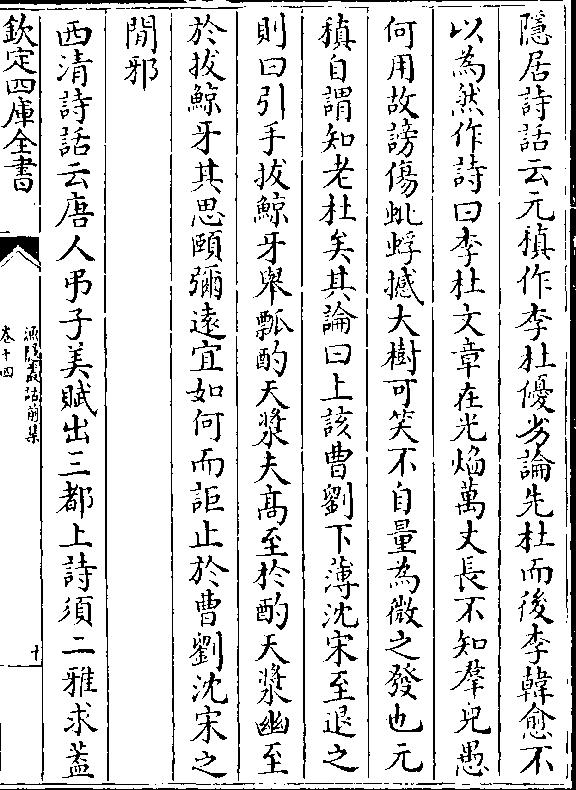 隱居詩話云元稹作李杜優劣論先杜而後李韓愈不
以為然作詩曰李杜文章在光燄萬丈長不知羣兒愚
何用故謗傷蚍蜉撼大樹可笑不自量為微之發也元
稹自謂知老杜矣其論曰上該曹劉下薄沈宋至退之
則曰引手拔鯨牙舉瓢酌天漿夫髙至於酌天漿幽至
於拔鯨牙其思頤彌遠宜如何而詎止於曹劉沈宋之
間邪
西清詩話云唐人弔子美賦出三都上詩須二雅求葢
欽定四庫全書
漁隱叢話前集
卷十四
十